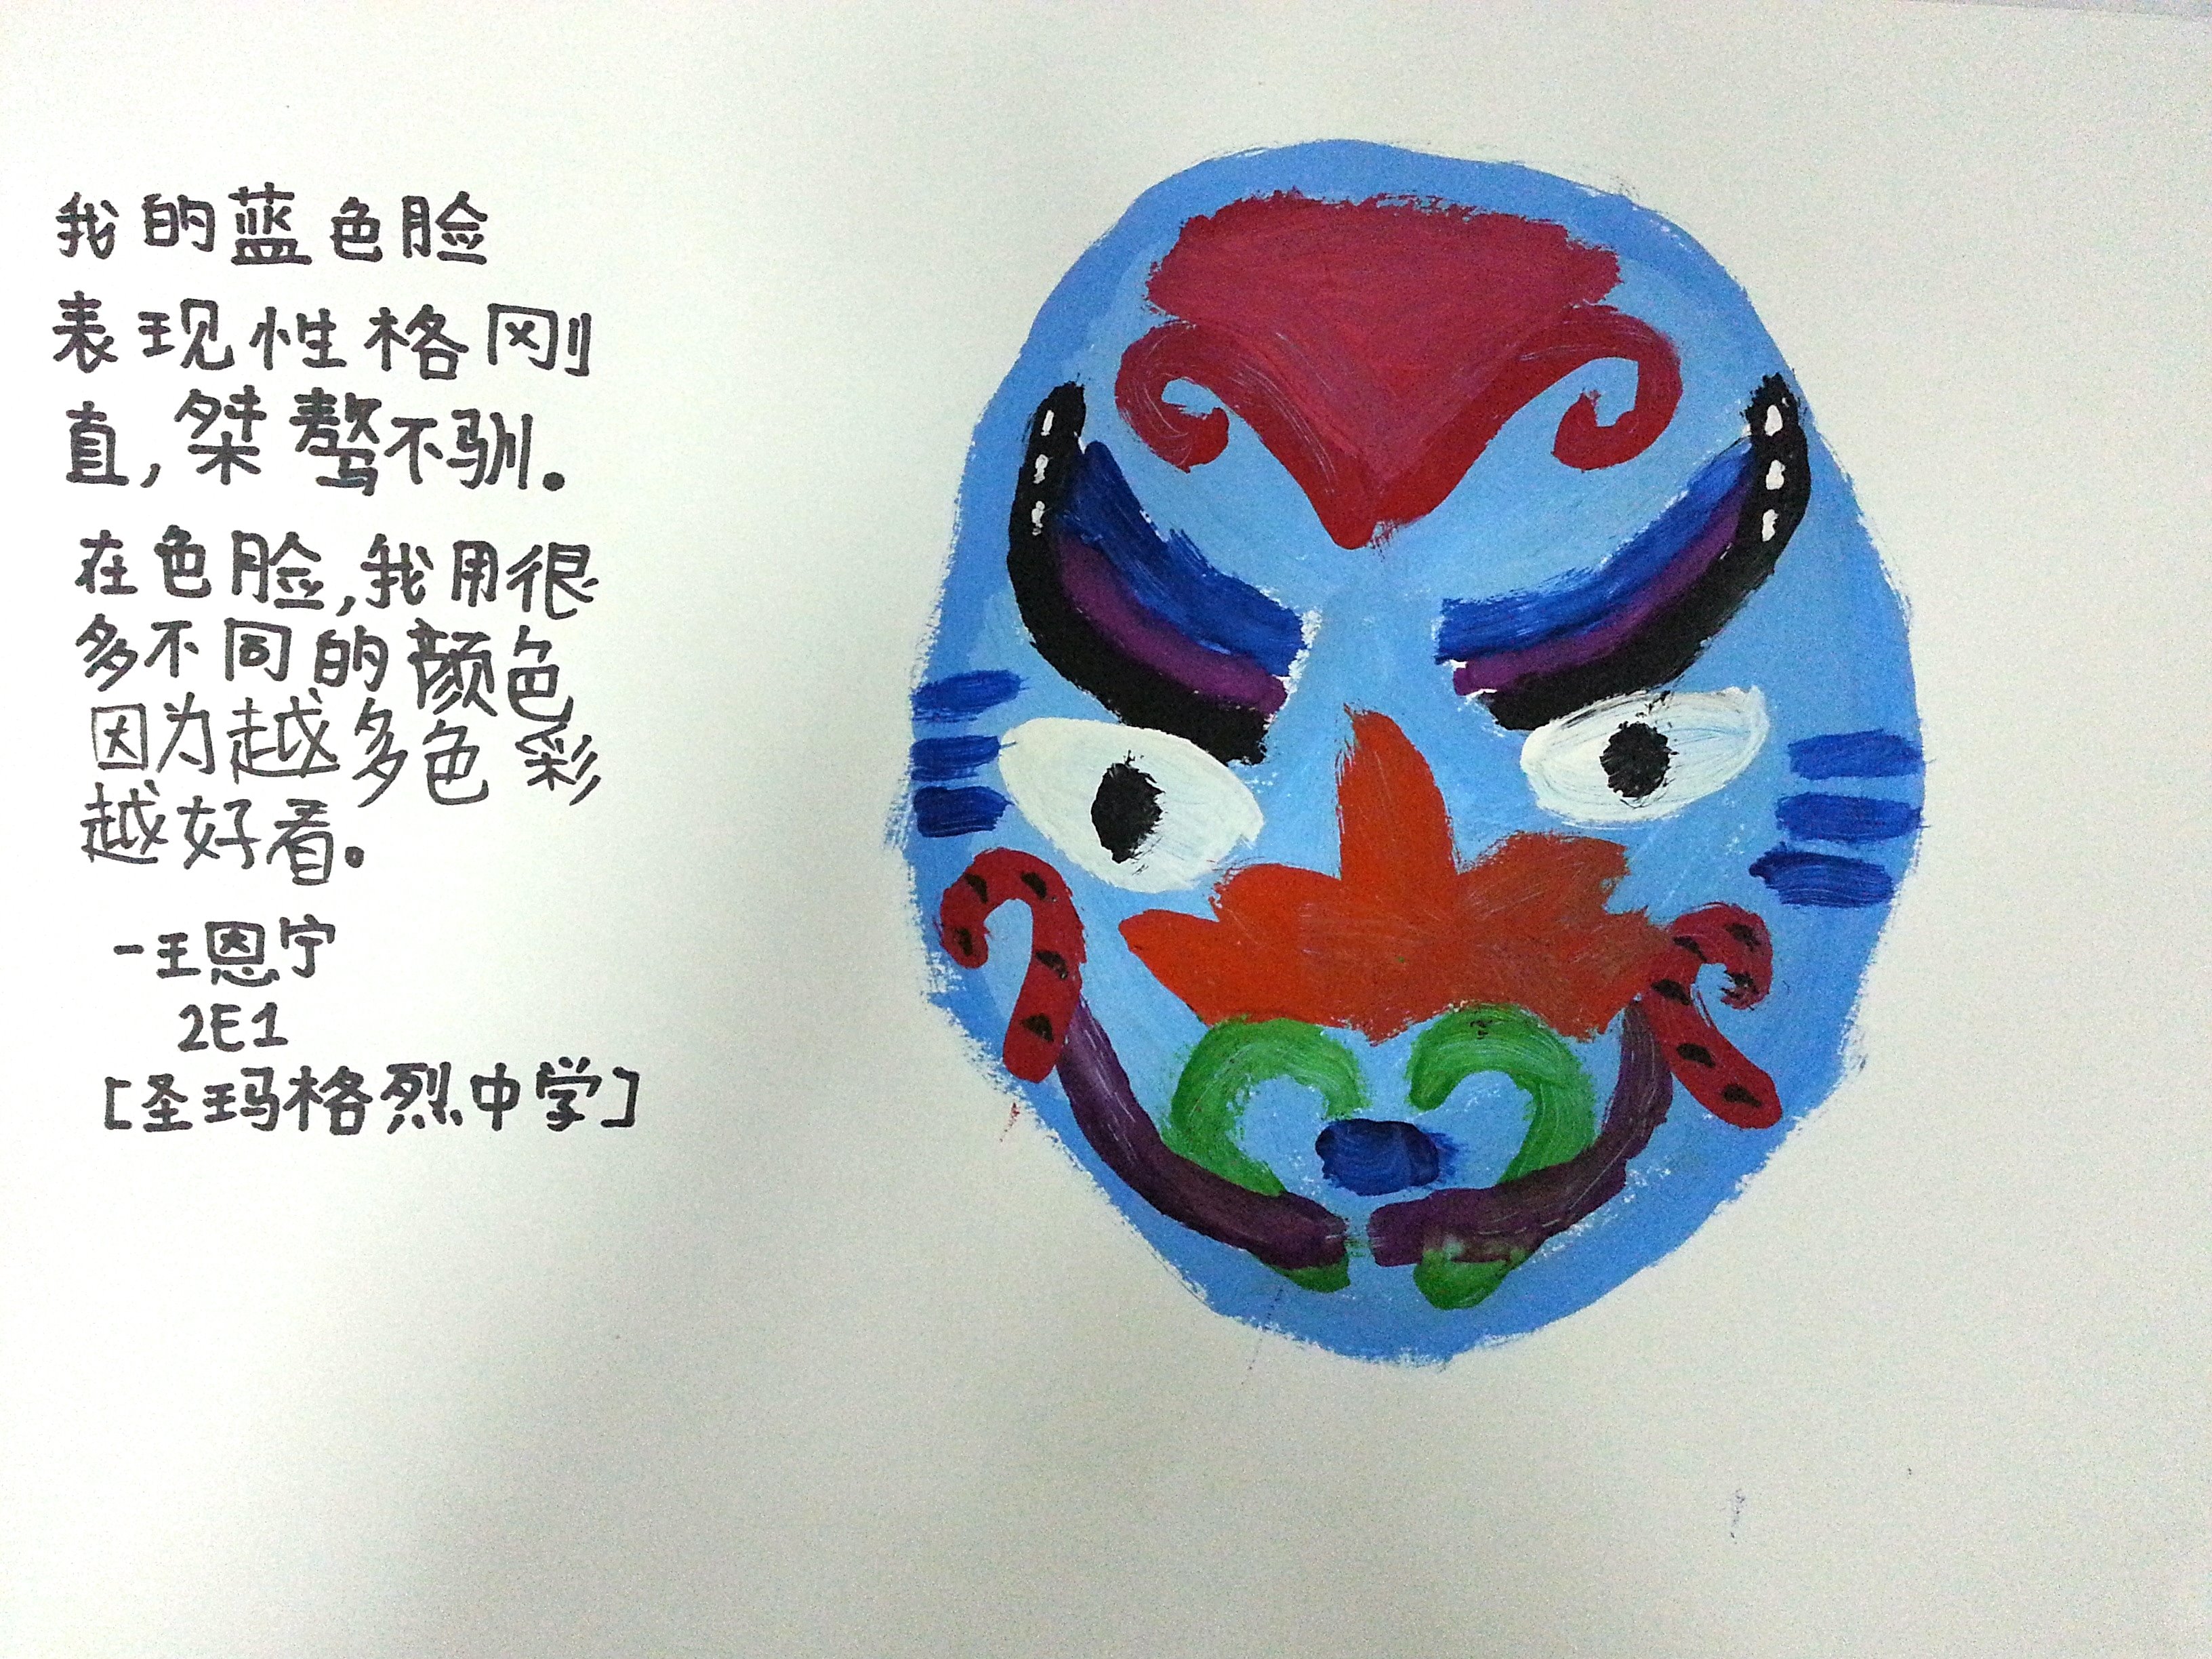 我的蓝色脸
表现性格刚
直,桀骜不驯.
在色脸,我用很
多不同的颜色
因为越多色彩
越好看.
-王恩宁
2E1
[圣玛格烈中学]